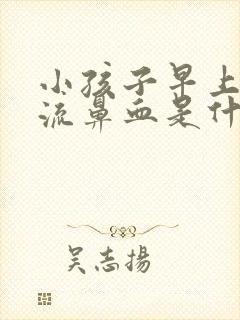 小孩子早上
流鼻血是什
吴志揚